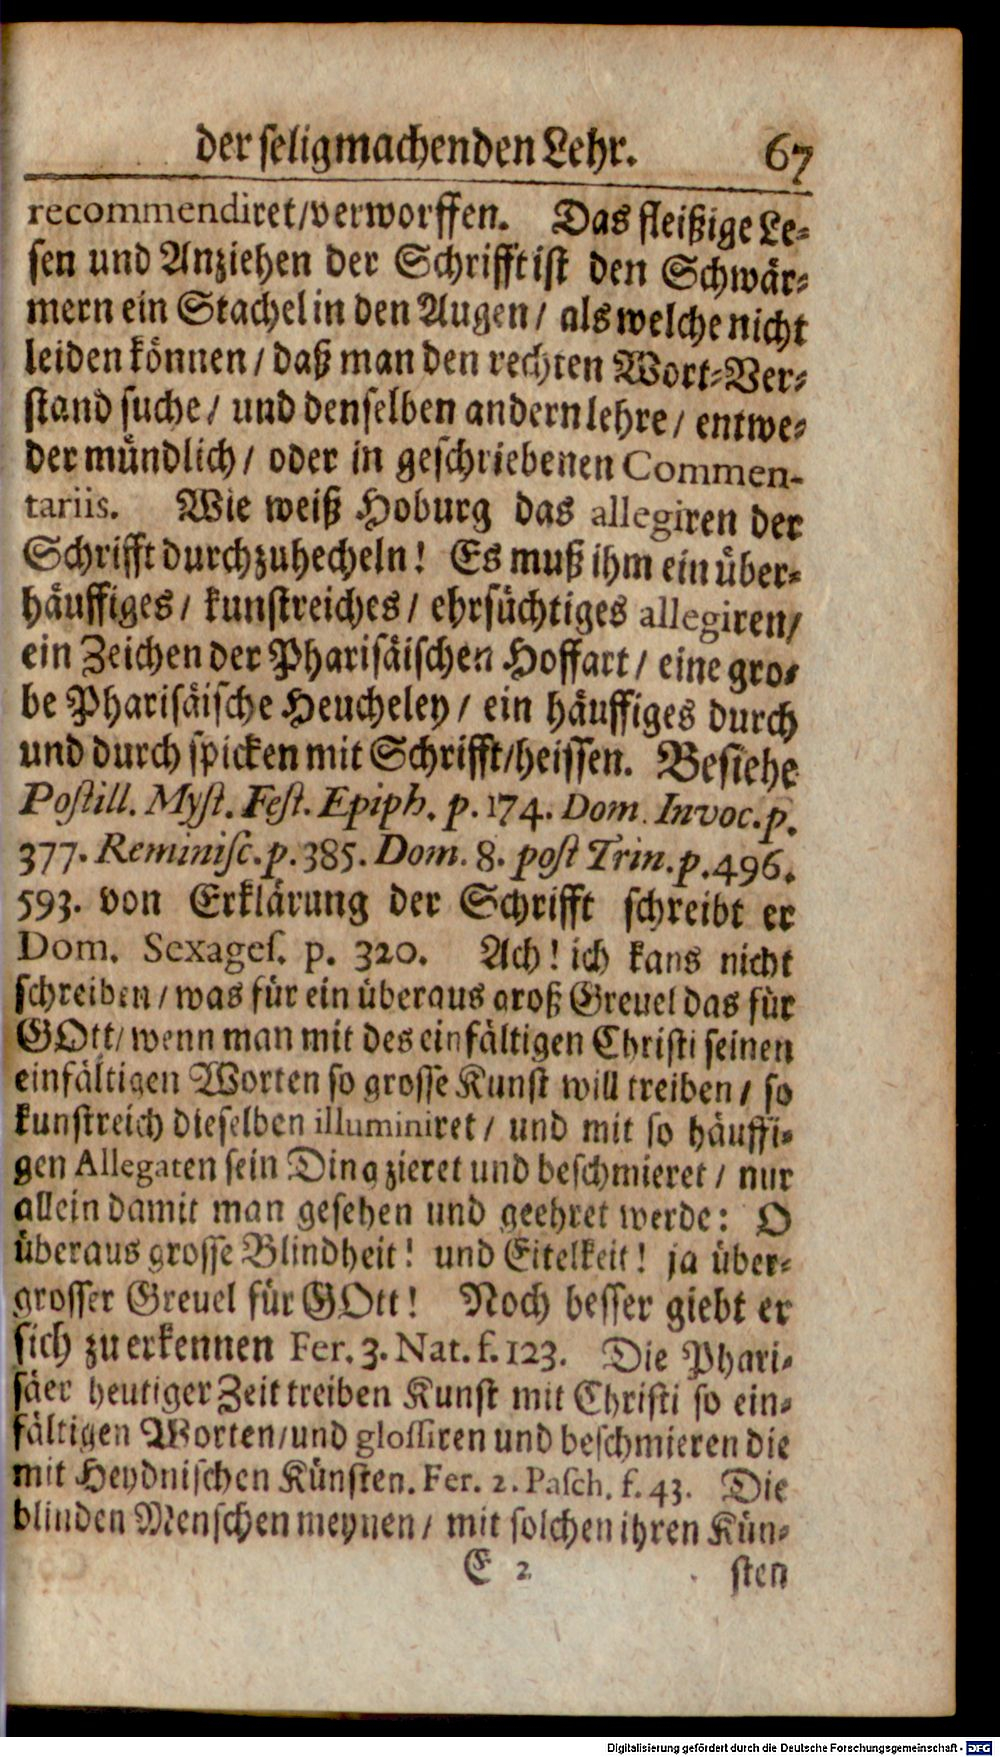 der seligmachenden Lehr. 67
recommendiret/verworffen. Das fleißige Le-
sen und Anziehen der Schrifft ist den Schwär-
mern ein Stachel in den Augen/ als welche nicht
leiden können/ daß man den rechten Wort-Ver-
stand suche/ und denselben andern lehre/ entwe-
der mündlich/ oder in geschriebenen Commen-
tariis. Wie weiß Hoburg das allegiren der
Schrifft durchzuhecheln! Es muß ihm ein über-
häuffiges/ kunstreiches/ ehrsüchtiges allegiren/
ein Zeichen der Pharisäischen Hoffart/ eine gro-
be Pharisäische Heucheley/ ein häuffiges durch
und durch spicken mit Schrifft/heissen. Besiehe
Postill. Myst. Fest. Epiph. p. 174. Dom. Invoc. p.
377. Reminisc. p. 385. Dom. 8. post Trin. p. 496.
593. von Erklärung der Schrifft schreibt er
Dom. Sexages. p. 320. Ach! ich kans nicht
schreiben/ was für ein überaus groß Greuel das für
GOtt/ wenn man mit des einfältigen Christi seinen
einfältigen Worten so grosse Kunst will treiben/ so
kunstreich dieselben illuminiret/ und mit so häuffi-
gen Allegaten sein Ding zieret und beschmieret/ nur
allein damit man gesehen und geehret werde: O
überaus grosse Blindheit! und Eitelkeit! ja über-
grosser Greuel für GOtt! Noch besser giebt er
sich zu erkennen Fer. 3. Nat. f. 123. Die Phari-
säer heutiger Zeit treiben Kunst mit Christi so ein-
fältigen Worten/und glossiren und beschmieren die
mit Heydnischen Künsten. Fer. 2. Pasch. f. 43. Die
blinden Menschen meynen/ mit solchen ihren Kün-
E 2 sten
Digitalisierung gefördert durch die Deutsche Forschungsgemeinschaft - DFG